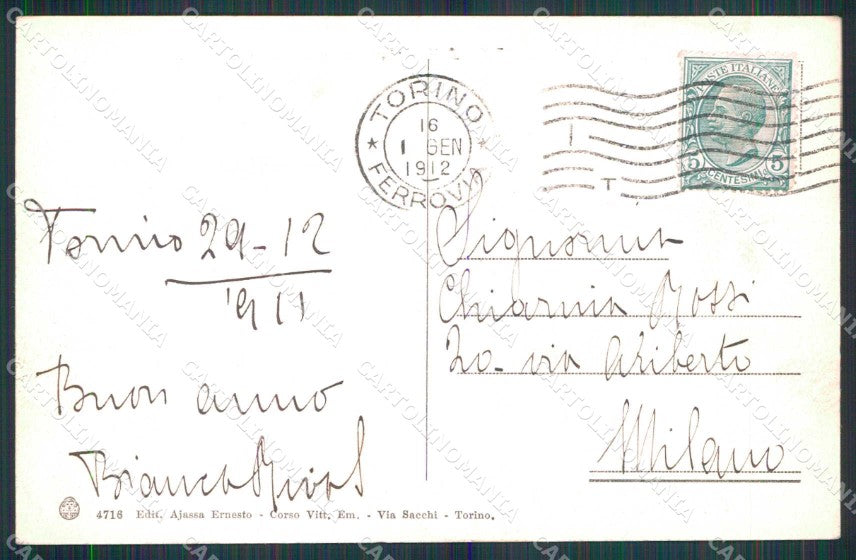 TORINO
16
1 GEN
1912
FERROVIA
POSTE ITALIANE
5 5
CENTESIMI
I
T
Torino 29-12
1911
Buon anno
Bianca
Signorina
Chiarina Rossi
20- via Ariberto
Milano
4716 Edit. Ajassa Ernesto - Corso Vitt. Em. - Via Sacchi - Torino.
CARTOLINOMANIA